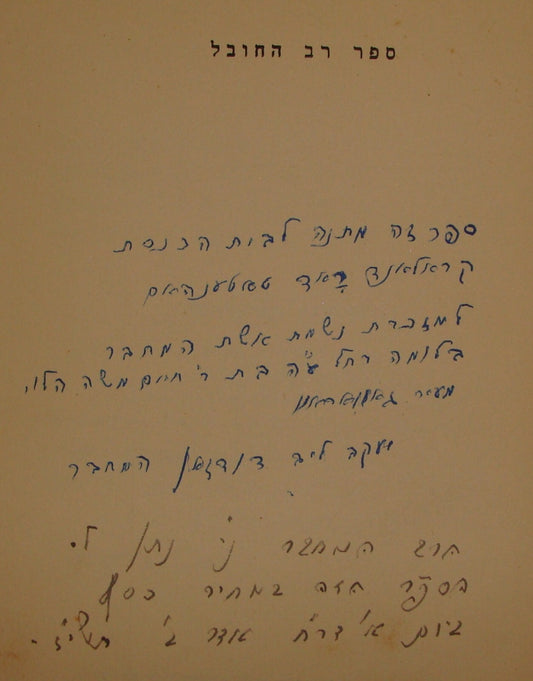 ספר רב החובל
ספר זה מתנה לבית הכנסת
קראולאנד ראוד טאטענהאם
למזכרת נשמת אשת המחבר
בלומה רחל ע״ה בת ר' חיים משה הלוי
מעיר
יעקב ליב המחבר
הרב המחבר נ״י נתן לי
הספר הזה במחיר כסף
ביום א' דר״ח אדר ב' תשי״ז